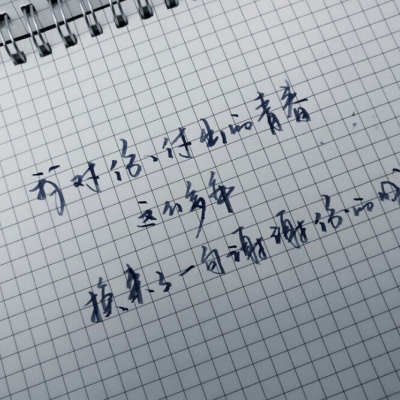 我对你付出的青春
这么多年
换来了一句谢谢你的成